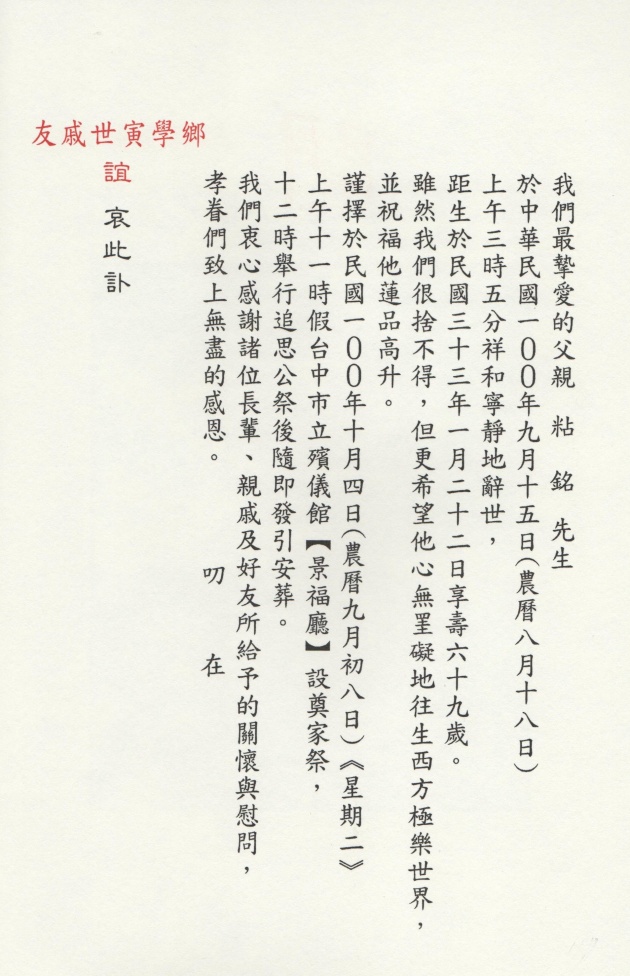 我們最摯愛的父親 粘 銘 先生
於中華民國一００年九月十五日(農曆八月十八日)
上午三時五分祥和寧靜地辭世，
距生於民國三十三年一月二十二日享壽六十九歲。
雖然我們很捨不得，但更希望他心無罣礙地往生西方極樂世界，
並祝福他蓮品高升。
謹擇於民國一００年十月四日(農曆九月初八日)《星期二》
上午十一時假台中市立殯儀館【景福廳】設奠家祭，
十二時舉行追思公祭後隨即發引安葬。
我們衷心感謝諸位長輩、親戚及好友所給予的關懷與慰問，
孝眷們致上無盡的感恩。 叨 在
鄉學寅世戚友
誼 哀此訃